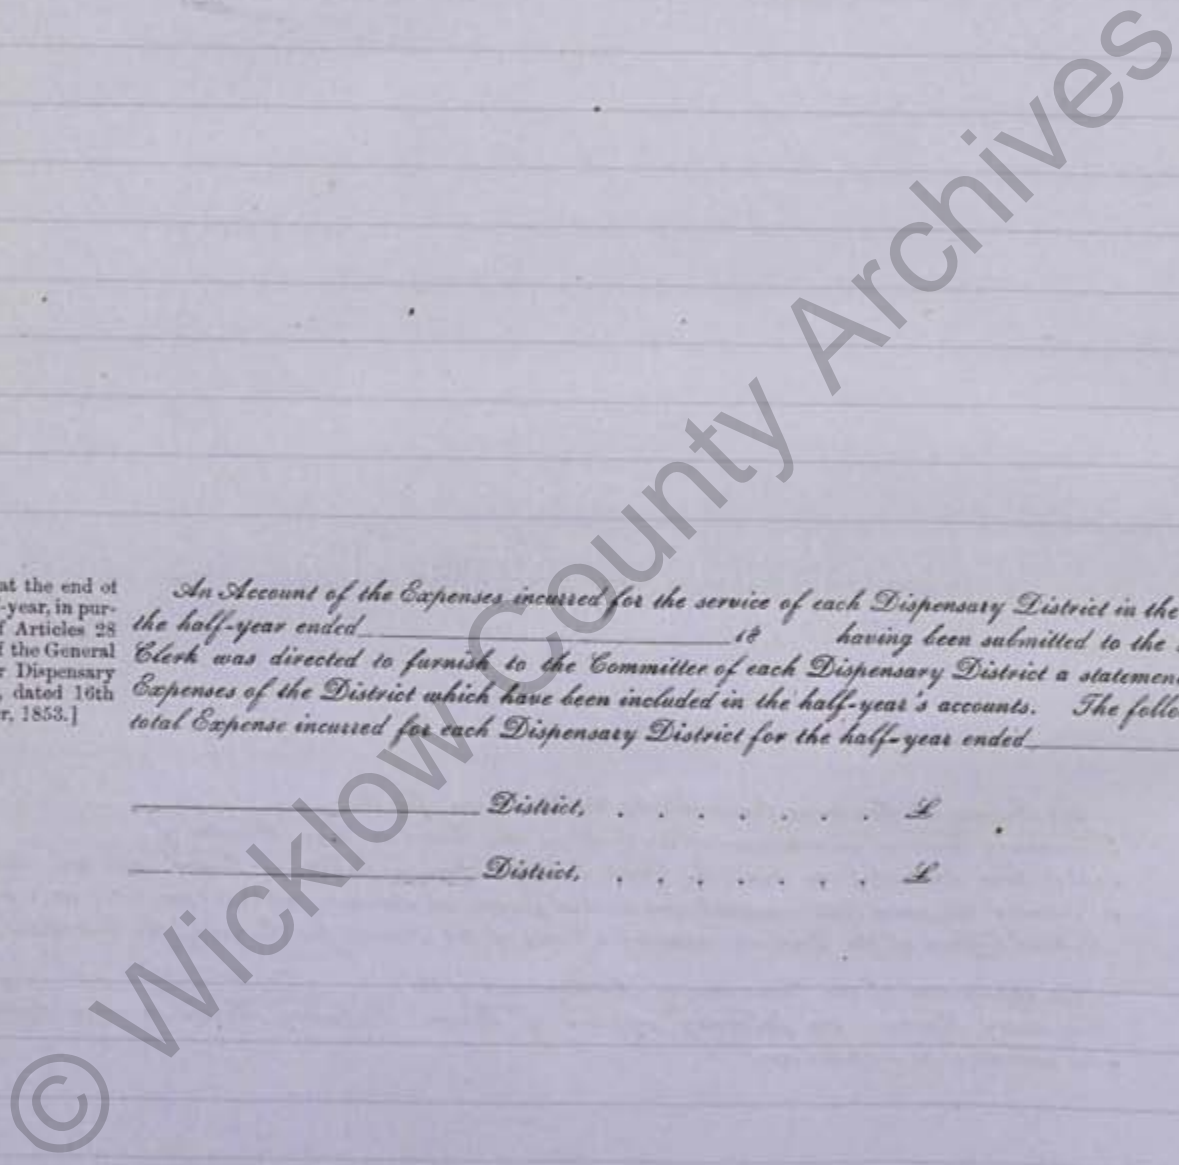 at the end of
-year, in pur-
f Articles 28
f the General
r Dispensary
, dated 16th
r, 1853.]
An Account of the Expenses incurred for the service of each Dispensary District in the
the half-year ended 18 having been submitted to the
Clerk was directed to furnish to the Committee of each Dispensary District a statemen
Expenses of the District which have been included in the half-year's accounts. The follo
total Expense incurred for each Dispensary District for the half-year ended
District, . . . . . . . £
District, . . . . . . . £
© Wicklow County Archives